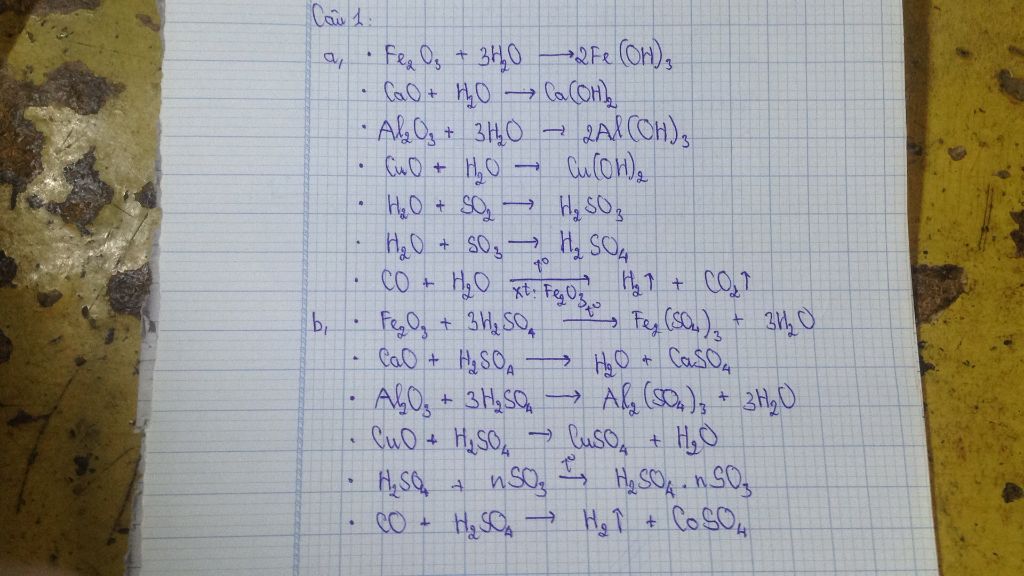 Câu 1:
a, · Fe₂O₃ + 3H₂O ⟶ 2Fe(OH)₃
· CaO + H₂O ⟶ Ca(OH)₂
· Al₂O₃ + 3H₂O → 2Al(OH)₃
· CuO + H₂O ⟶ Cu(OH)₂
· H₂O + SO₂ ⟶ H₂SO₃
· H₂O + SO₃ ⟶ H₂SO₄
· CO + H₂O —t°, xt: Fe₂O₃→ H₂↑ + CO₂↑
b, · Fe₂O₃ + 3H₂SO₄ —t°→ Fe₂(SO₄)₃ + 3H₂O
· CaO + H₂SO₄ ⟶ H₂O + CaSO₄
· Al₂O₃ + 3H₂SO₄ ⟶ Al₂(SO₄)₃ + 3H₂O
· CuO + H₂SO₄ ⟶ CuSO₄ + H₂O
· H₂SO₄ + nSO₃ —t°→ H₂SO₄.nSO₃
· CO + H₂SO₄ ⟶ H₂↑ + CoSO₄